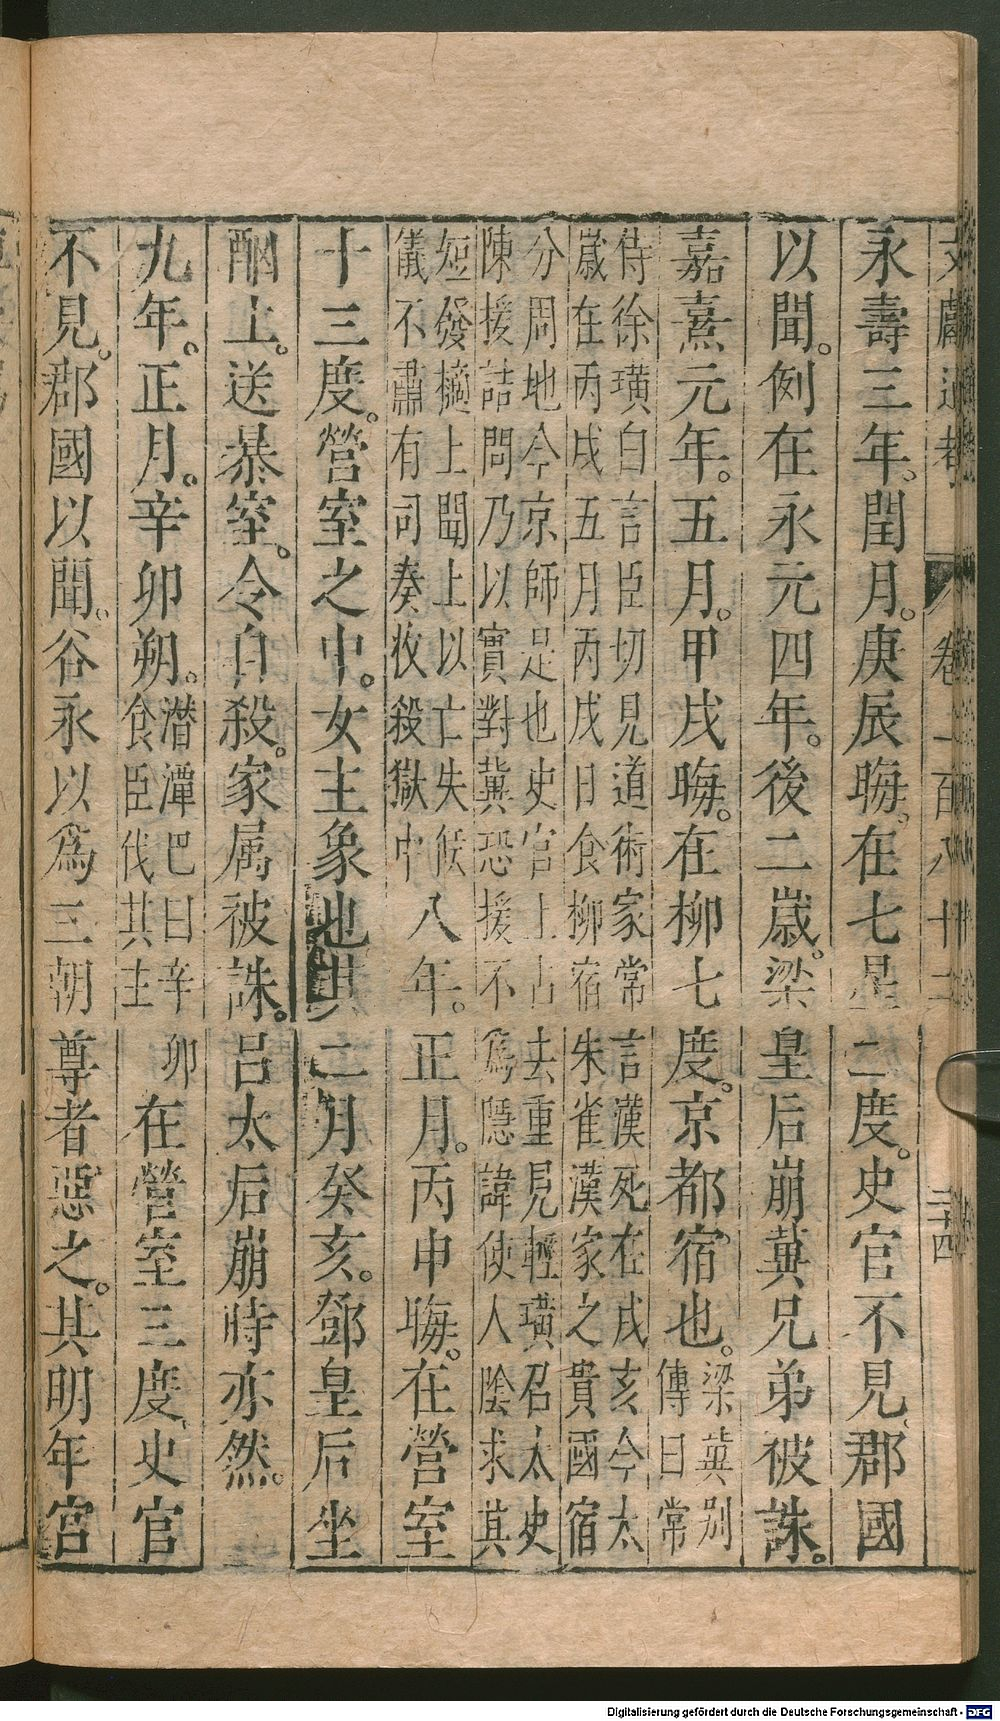 文獻通考　卷二百八十二　三十四
永壽三年。閏月。庚辰晦。在七星二度。史官不見。郡國
以聞。例在永元四年。後二歲。梁皇后崩兾兄弟被誅。
嘉熹元年。五月。甲戌晦。在柳七度。京都宿也。梁兾別傳曰常
侍徐璜白言臣切見道術家常言漢死在戌亥今太
歲在丙戌五月丙戌日食柳宿朱雀漢家之貴國宿
分周地今京師是也史官上占去重見輕璜召太史
陳援詰問乃以實對兾恐援不爲隱諱使人陰求其
短發擿上聞上以亡失候
儀不肅有司奏收殺獄中
八年。正月。丙申晦。在營室
十三度。營室之中。女主象也其二月癸亥。鄧皇后坐
酗上。送暴室。令自殺。家属被誅。呂太后崩時亦然。
九年。正月。辛卯朔。潛潭巴曰辛卯食臣伐其主在營室三度。史官
不見。郡國以聞。谷永以爲三朝尊者惡之。其明年宮
Digitalisierung gefördert durch die Deutsche Forschungsgemeinschaft - DFG